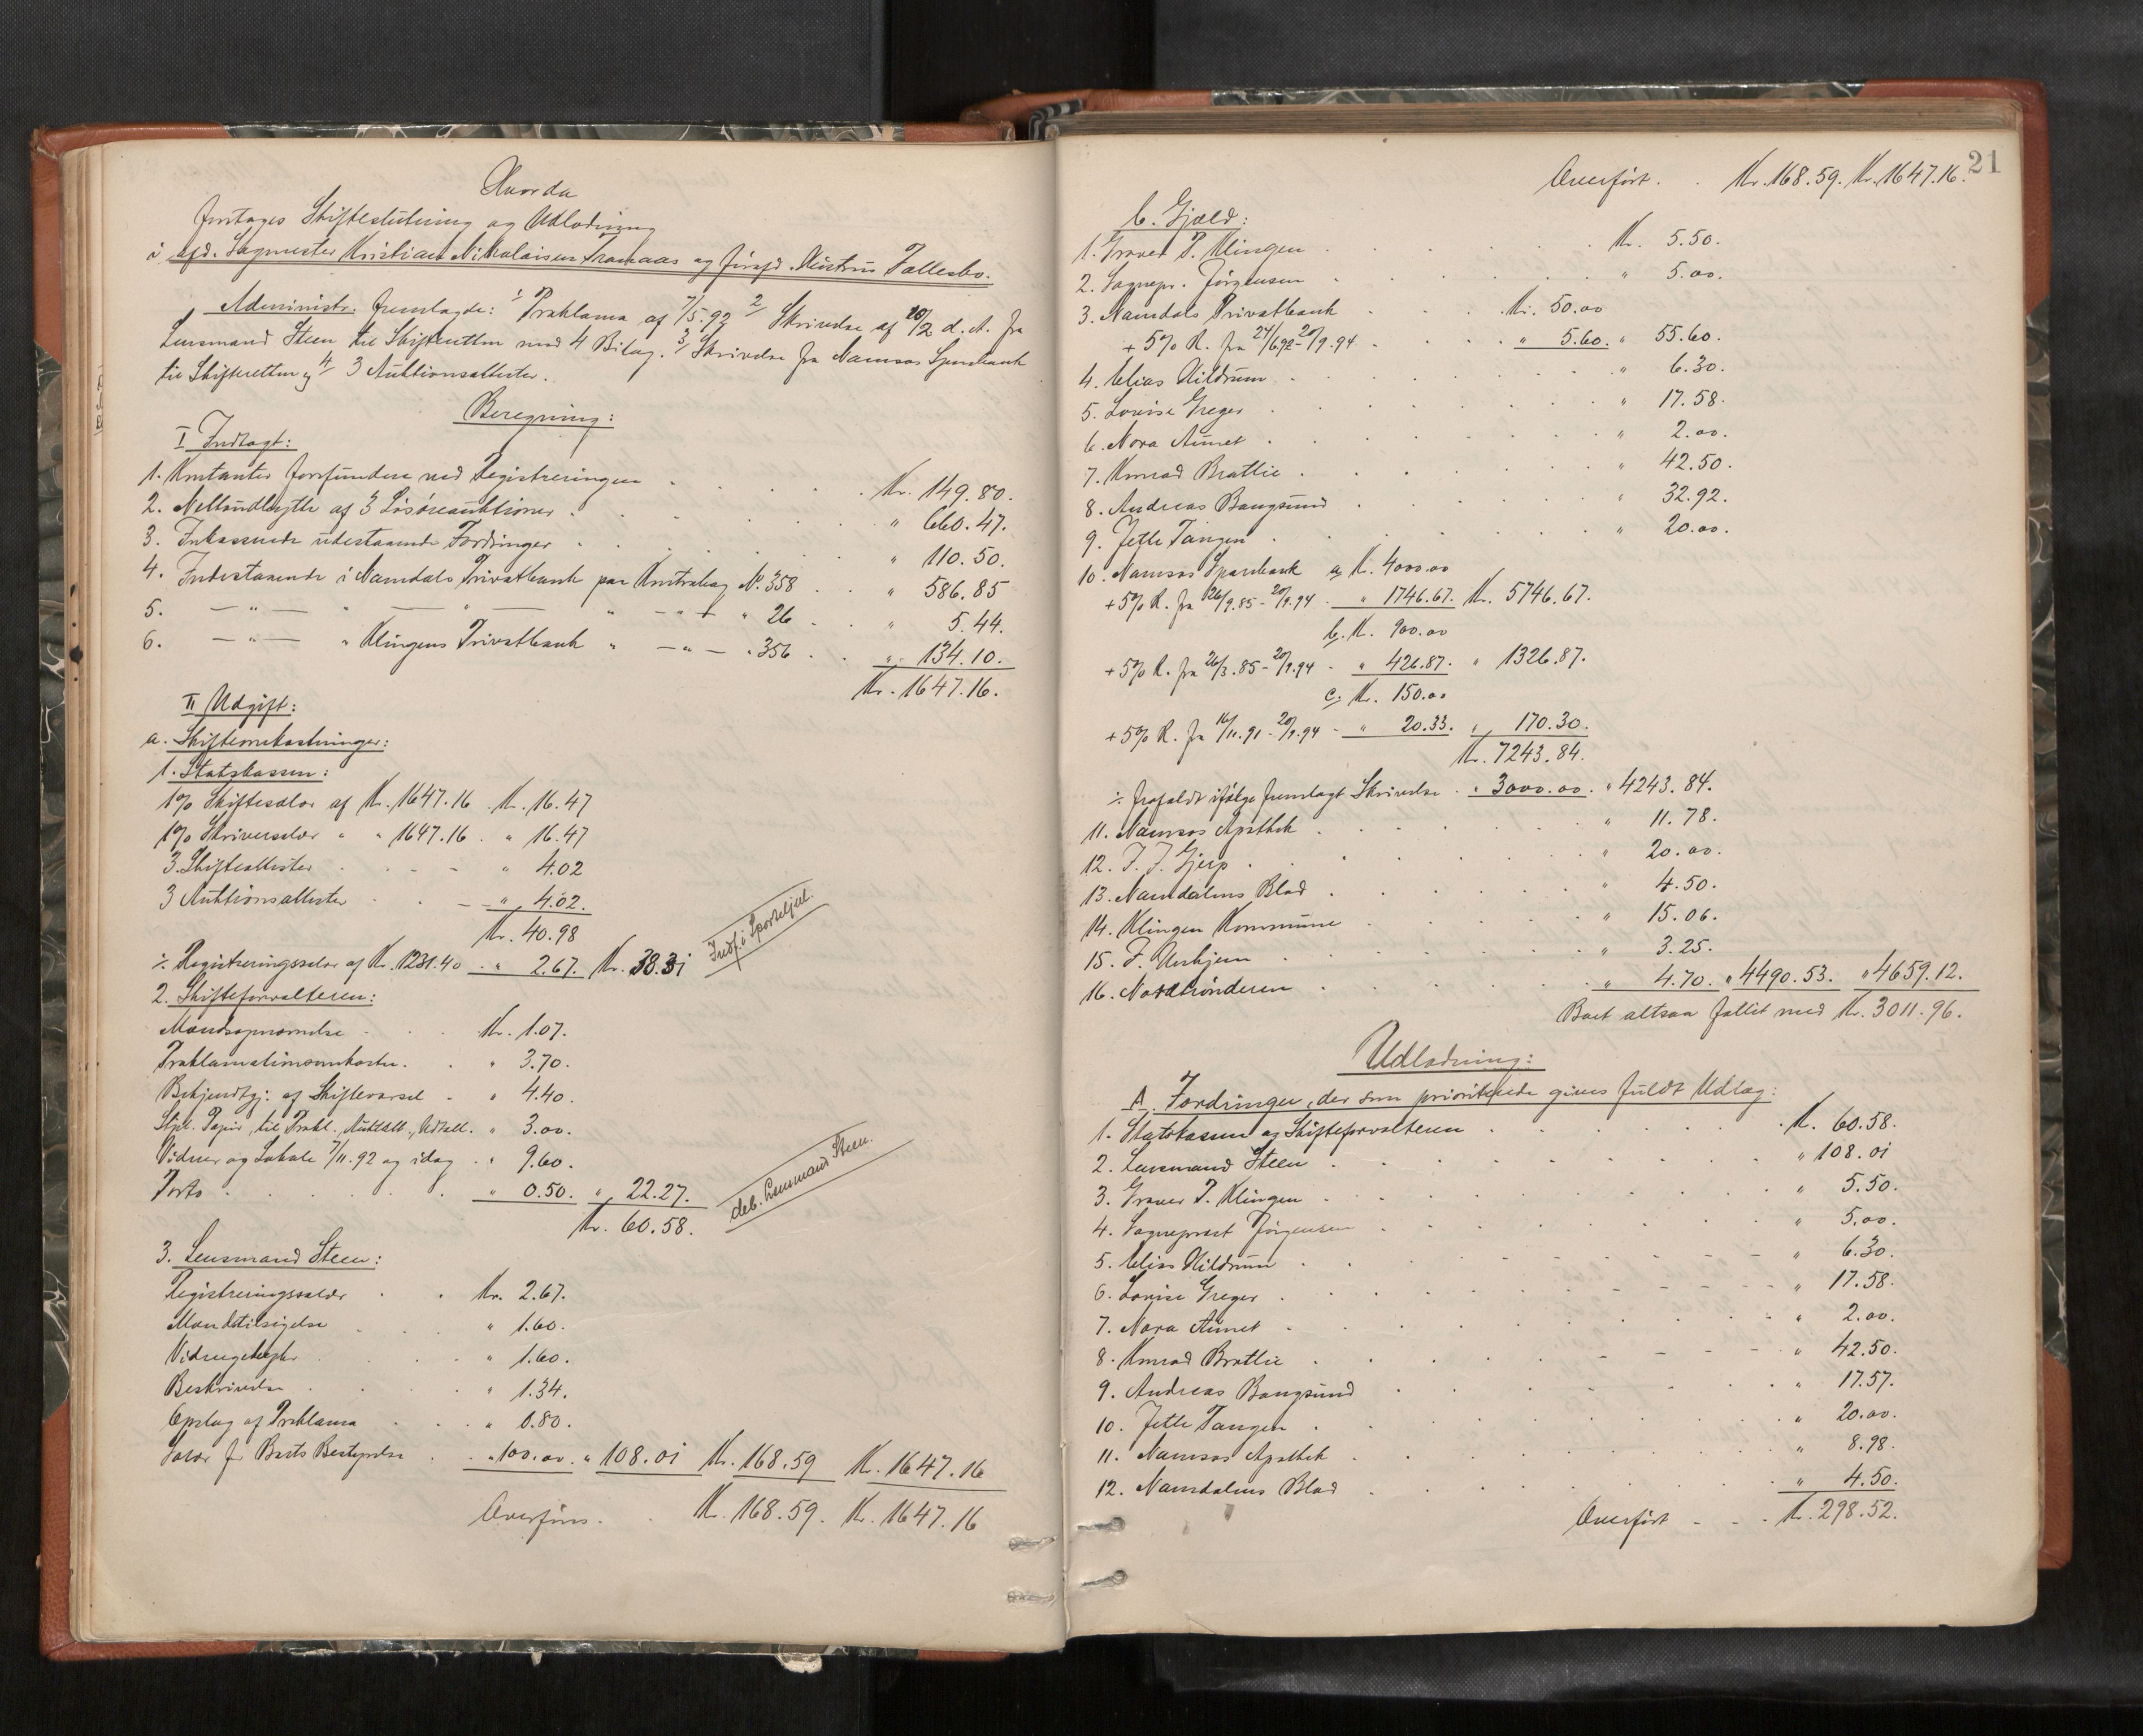 Hvorda
foretoges Skifteslutning og Udlodning
i afd. Sagmester Kristian Nikolaisen Tranaas og førafd. Hustrus Fællesbo.
Administr. fremlagde: 1/ Proklama af 7/5.92 2/ Skrivelse af 20/2 d. A. fra
Lensmand Steen til Skifteretten med 4 Bilag. 3/ Skrivelse fra Namsos Sparebank
til Skifteretten og 4/ 3 Auktionsattester.
Beregning:
I Indtægt:
1. Kontanter forefundne ved Registreringen . . . Kr. 149.80.
2. Nettoudbytte af 3 Løsøreauktioner . . . " 660.47.
3. Inkasserede udestaaende Fordringer . . . " 110.50.
4. Indestaaende i Namdals Privatbank paa Kontrabog No 358 . . " 586.85
5. — " — " — " — " — " — " 26 . . " 5.44.
6. — " — " Klingens Privatbank " — " — " 356 . . " 134.10.
Kr. 1647.16.
II Udgift:
a. Skifteomkostninger:
1. Statskassen:
1% Skiftesalær af Kr. 1647.16 . Kr. 16.47
1% Skriversalær " " 1647.16 . " 16.47
3 Skifteattester . . . " 4.02
3 Auktionsattester . . . " 4.02.
Kr. 40.98
÷ Registreringssalær af Kr. 1231.40 . . " 2.67. Kr. 38.31
Indf. i Sporteljnl.
2. Skifteforvalteren:
Mandsopnævnelse . . . Kr. 1.07.
Proklamationsomkostn. . . " 3.70.
Bekjendtgj: af Skiftevarsel . " 4.40.
Stpl. Papir til Prokl., Auktatt., Udtall. " 3.00.
Vidner og Lokale 7/11.92 og idag . " 9.60.
Porto . . . . . " 0.50. " 22.27.
Kr. 60.58.
deb. Lensmand Steen.
3. Lensmand Steen:
Registreringssalær . . Kr. 2.67.
Mandstilsigelse . . . " 1.60.
Vidnegebyr . . . " 1.60.
Beskrivelse . . . " 1.34.
Opslag af Proklama . . . " 0.80.
Salær for Boets Bestyrelse . . " 100.00. " 108.01 Kr. 168.59 Kr. 1647.16
Overføres . . Kr. 168.59. Kr. 1647.16
21
Overført . . Kr. 168.59. Kr. 1647.16.
b. Gjæld:
1. Graver P. Klingen . . . Kr. 5.50.
2. Sognepr. Jørgensen . . . " 5.00.
3. Namdals Privatbank . . . Kr. 50.00
+ 5% R. fra 24/6.92 - 20/9.94 . . . " 5.60. " 55.60.
4. Elias Hildrum . . . " 6.30.
5. Lovise Greger . . . " 17.58.
6. Nora Aunet . . . " 2.00.
7. Konrad Brattlie . . . " 42.50.
8. Andreas Bangsund . . . " 32.92.
9. Jette Tangen . . . " 20.00.
10. Namsos Sparebank a, Kr. 4000.00
+ 5% R. fra 26/9.85 - 20/9.94 . " 1746.67. Kr. 5746.67.
b, Kr. 900.00
+ 5% R. fra 26/3.85 - 20/9.94 . " 426.87. " 1326.87.
c, Kr. 150.00
+ 5% R. fra 16/11.91 - 20/9.94 . " 20.33. " 170.30.
Kr. 7243.84.
÷ frafaldt ifølge fremlagt Skrivelse . " 3000.00. " 4243.84.
11. Namsos Apothek . . . " 11.78.
12. J. J. Gjerp . . . " 20.00.
13. Namdalens Blad . . . " 4.50.
14. Klingen Kommune . . . " 15.06.
15. J. Urhjem . . . " 3.25.
16. Nordtrønderen . . . " 4.70. " 4490.53. " 4659.12.
Boet altsaa fallit med Kr. 3011.96.
Udlodning:
A. Fordringer, der som prioriterede gives fuldt Udlæg:
1. Statskassen og Skifteforvalteren . . . Kr. 60.58.
2. Lensmand Steen . . . " 108.01
3. Graver P. Klingen . . . " 5.50.
4. Sogneprest Jørgensen . . . " 5.00.
5. Elias Hildrum . . . " 6.30.
6. Lovise Greger . . . " 17.58.
7. Nora Aunet . . . " 2.00.
8. Konrad Brattlie . . . " 42.50.
9. Andreas Bangsund . . . " 17.57.
10. Jette Tangen . . . " 20.00.
11. Namsos Apothek . . . " 8.98.
12. Namdalens Blad . . . " 4.50.
Overført . . . Kr. 298.52.